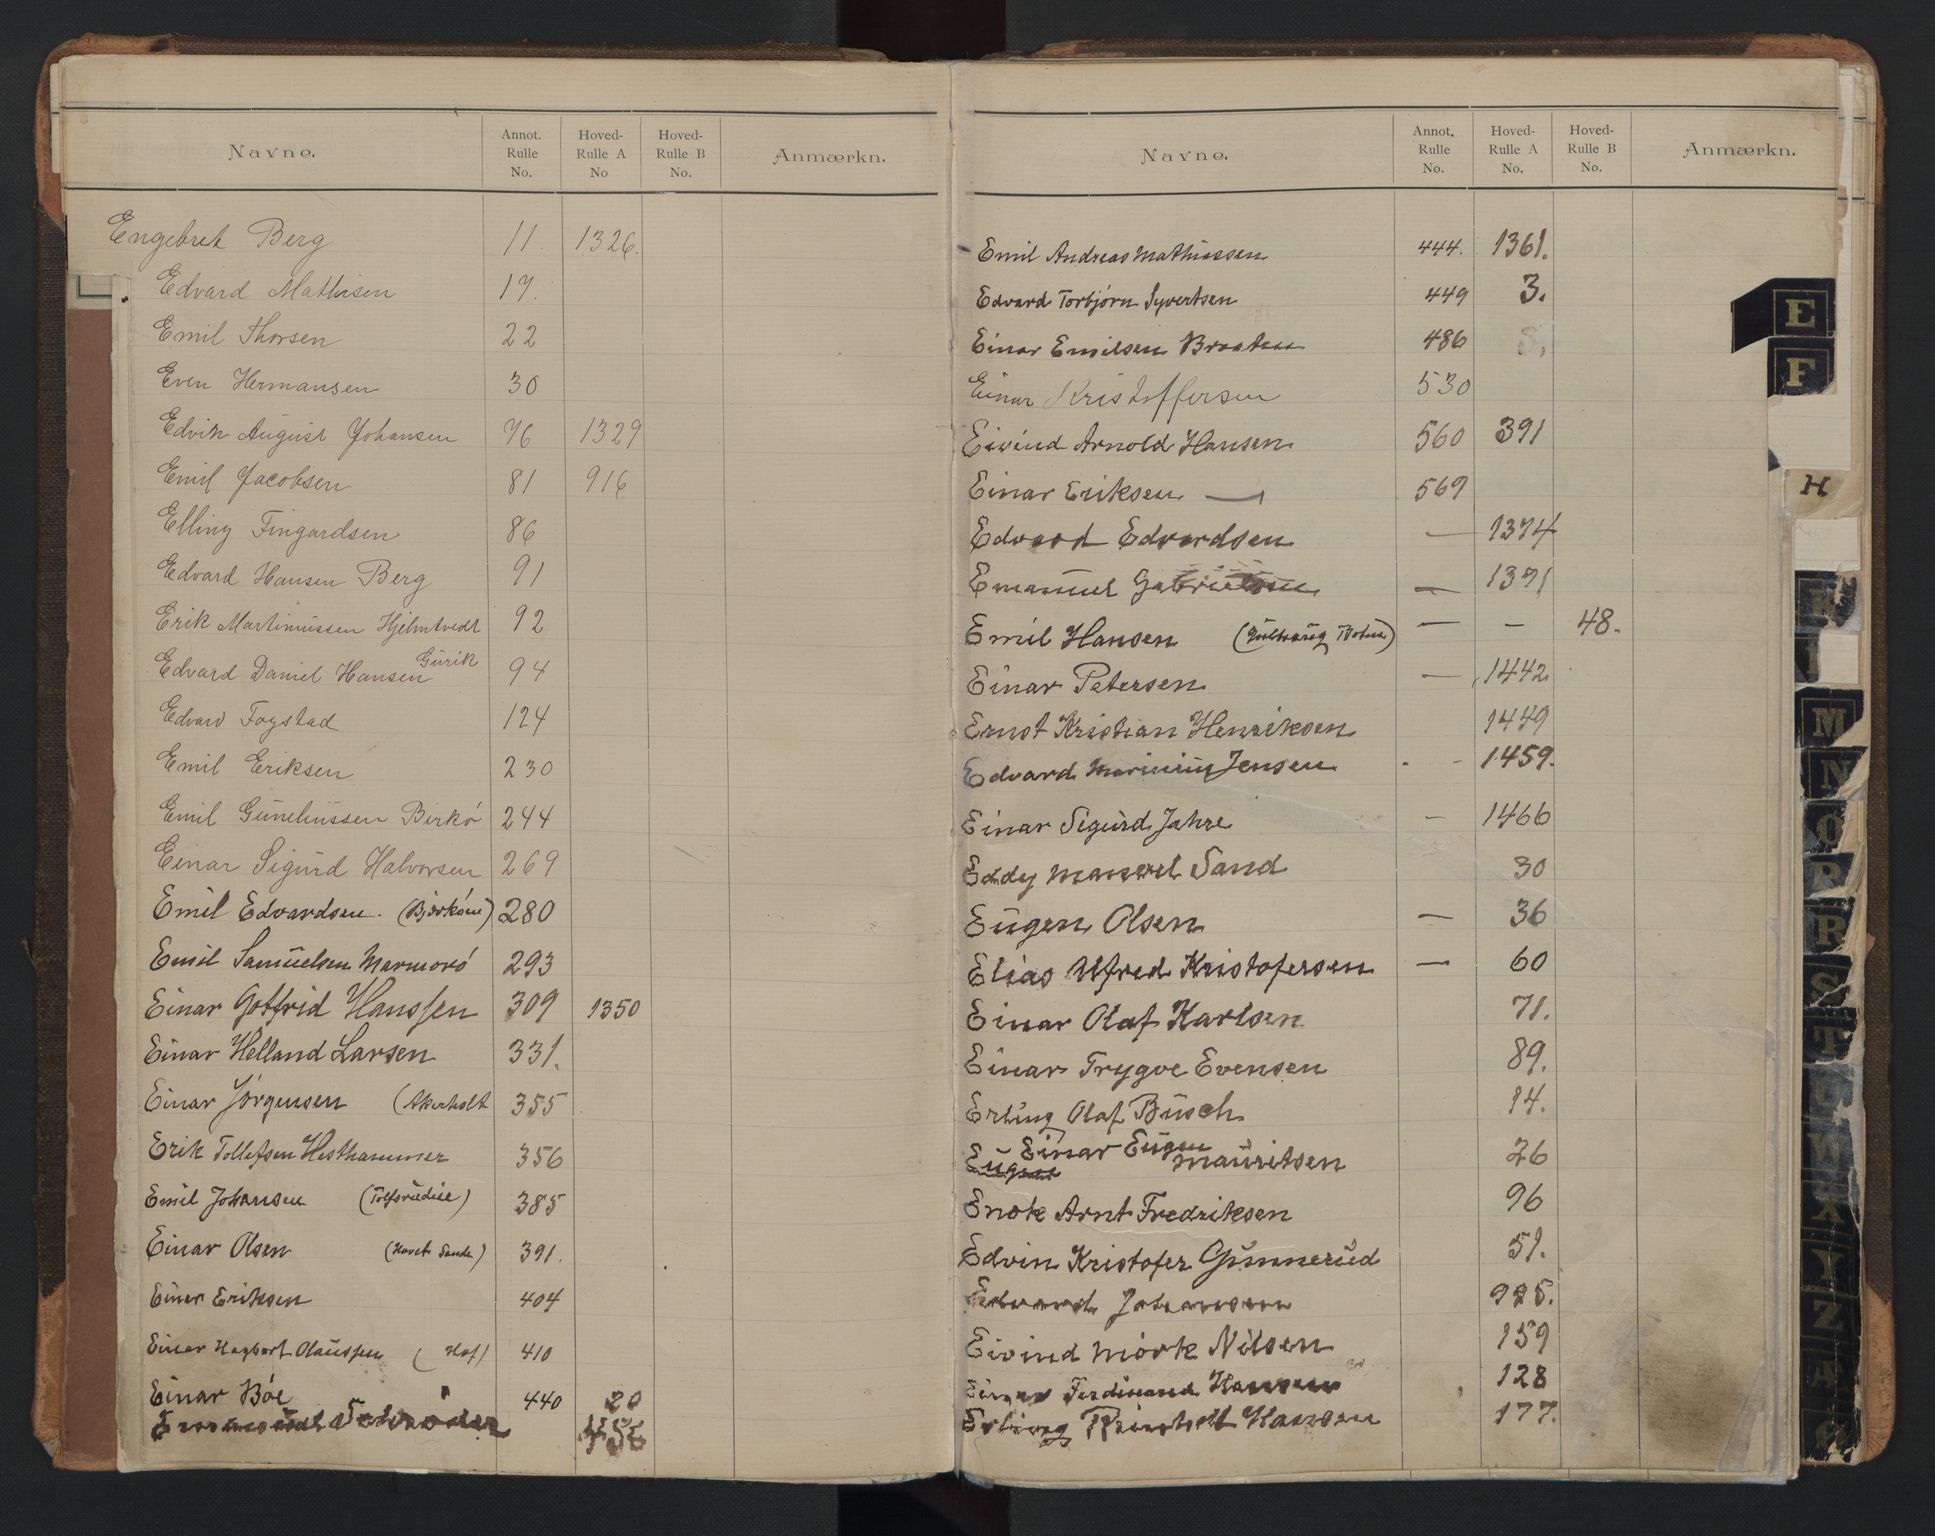 Navne.
Annot. Rulle No.
Hoved-Rulle A No
Hoved-Rulle B No.
Anmærkn.
Engebret Berg 11. 1326.
Edvard Mathisen 17.
Emil Thorsen 22
Even Hermansen 30
Edvin August Johansen 76 1329
Emil Jacobsen 81 916
Elling Fingardsen 86
Edvard Hansen Berg 91
Erik Martiniussen Hjelmtvedt 92
Edvard Daniel Hansen Gurik 94
Edvard Fogstad 124
Emil Eriksen 230
Emil Guneliussen Birkö 244
Einar Sigurd Halvorsen 269
Emil Edvardsen. 280
Emil Samuelsen Marmorö 293
Einar Gotfrid Hanssen 309 1350
Einar Helland Larsen 331.
Einar Jörgensen (Akerholt 355
Erik Tollefsen Hesthammer 356
Emil Johansen 385
Einar Olsen 391.
Einar Eriksen 404
Einar Hagbart Olaussen (Hof) 410
Einar Böe 440 20
Schröder
Navne.
Annot. Rulle No.
Hoved-Rulle A No.
Hoved-Rulle B No.
Anmærkn.
Emil Andreas Mathiassen 444. 1361.
Edvard Torbjörn Syvertsen 449 3.
Einar Emilsen Braaten 486
Einar Kristoffersen 530
Eivind Arnold Hansen 560 391
Einar Eriksen 569
Edvard Edvardsen — 1374
Emanuel Gabrielsen — 1371
Emil Hansen — — 48.
Einar Petersen — 1442
Ernst Kristian Henriksen 1449
Edvard Jensen 1459.
Einar Sigurd Jahre — 1466
Eddy Manuel Sand 30
Eugen Olsen — 36
Elias Alfred Kristofersen — 60
Einar Olaf Karlsen 71.
Einar Trygve Evensen 89.
Erling Olaf Busch 14.
Einar Eugen
Eugen Mauritsen 26
Enok Arnt Fredriksen 96
Edvin Kristofer Gunnerud 51.
Edvard Johansen
Eivind Mörk Nilsen 159
Einar Ferdinand Hansen 128
Erling Reinholt Hansen 177.
E
F
H
K
M
N
O
P
R
S
T
U
W
X
Y
Z